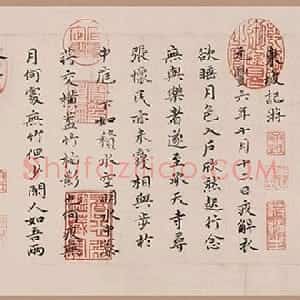 東坡記
六年十月十二日夜解衣
欲睡月色入戶欣然起行念
無與樂者遂至承天寺尋
張懷民亦未寢相與步於
中庭下如積水空明水中藻
荇交橫蓋竹柏影也何夜無
月何處無竹但少閑人如吾兩